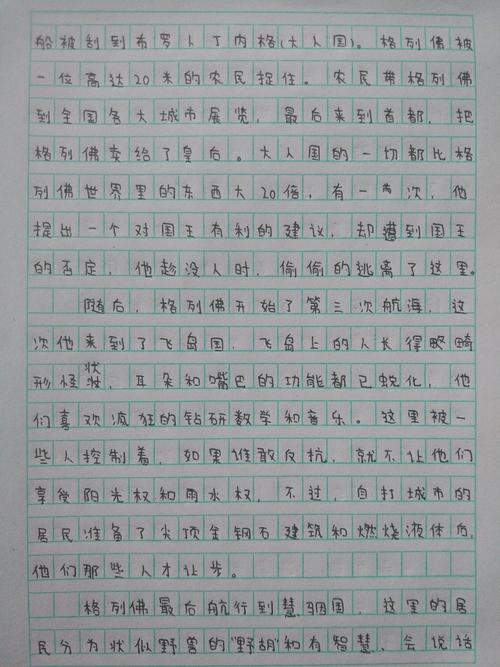 船被刮到布罗卜丁内格(大人国)。格列佛被
一位高达20米的农民捉住。农民带格列佛
到全国各大城市展览，最后来到首都，把
格列佛卖给了皇后。大人国的一切都比格
列佛世界里的东西大20倍，有一次，他
提出一个对国王有利的建议，却遭到国王
的否定，他趁没人时，偷偷的逃离了这里。
随后，格列佛开始了第三次航海，这
次他来到了飞岛国，飞岛上的人长得略畸
形怪状，耳朵和嘴巴的功能都已蜕化，他
们喜欢疯狂的钻研数学和音乐。这里被一
些人控制着，如果谁敢反抗，就不让他们
享受阳光权和雨水权，不过，自打城市的
居民准备了尖顶金钢石建筑和燃烧液体后，
他们那些人才让步。
格列佛最后航行到慧骃国，这里的居
民分为状似野兽的"野胡"和有智慧，会说话